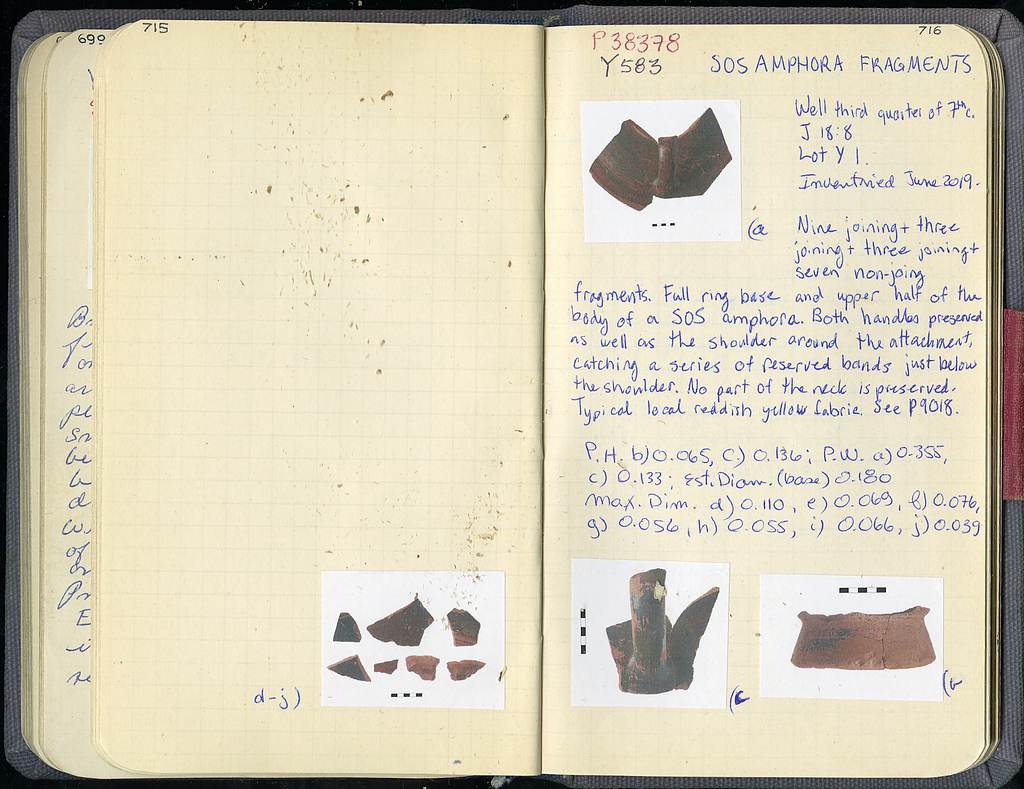 699
715
d-j)
716
P 38378
Y583 SOS AMPHORA FRAGMENTS
Well third quarter of 7th c.
J 18:8
Lot Y 1.
Inventried June 2019.
(a Nine joining + three
joining + three joining +
seven non-joing
fragments. Full ring base and upper half of the
body of a SOS amphora. Both handles preserved
as well as the shoulder around the attachment,
catching a series of reserved bands just below
the shoulder. No part of the neck is preserved.
Typical local reddish yellow fabric. See P9018.
P.H. b) 0.065, C.) 0.136; P.W. a) 0.355,
c) 0.133; Est. Diam. (base) 0.180
Max. Dim. d) 0.110, e) 0.069, f) 0.076,
g) 0.056, h) 0.055, i) 0.066, j) 0.039
(c